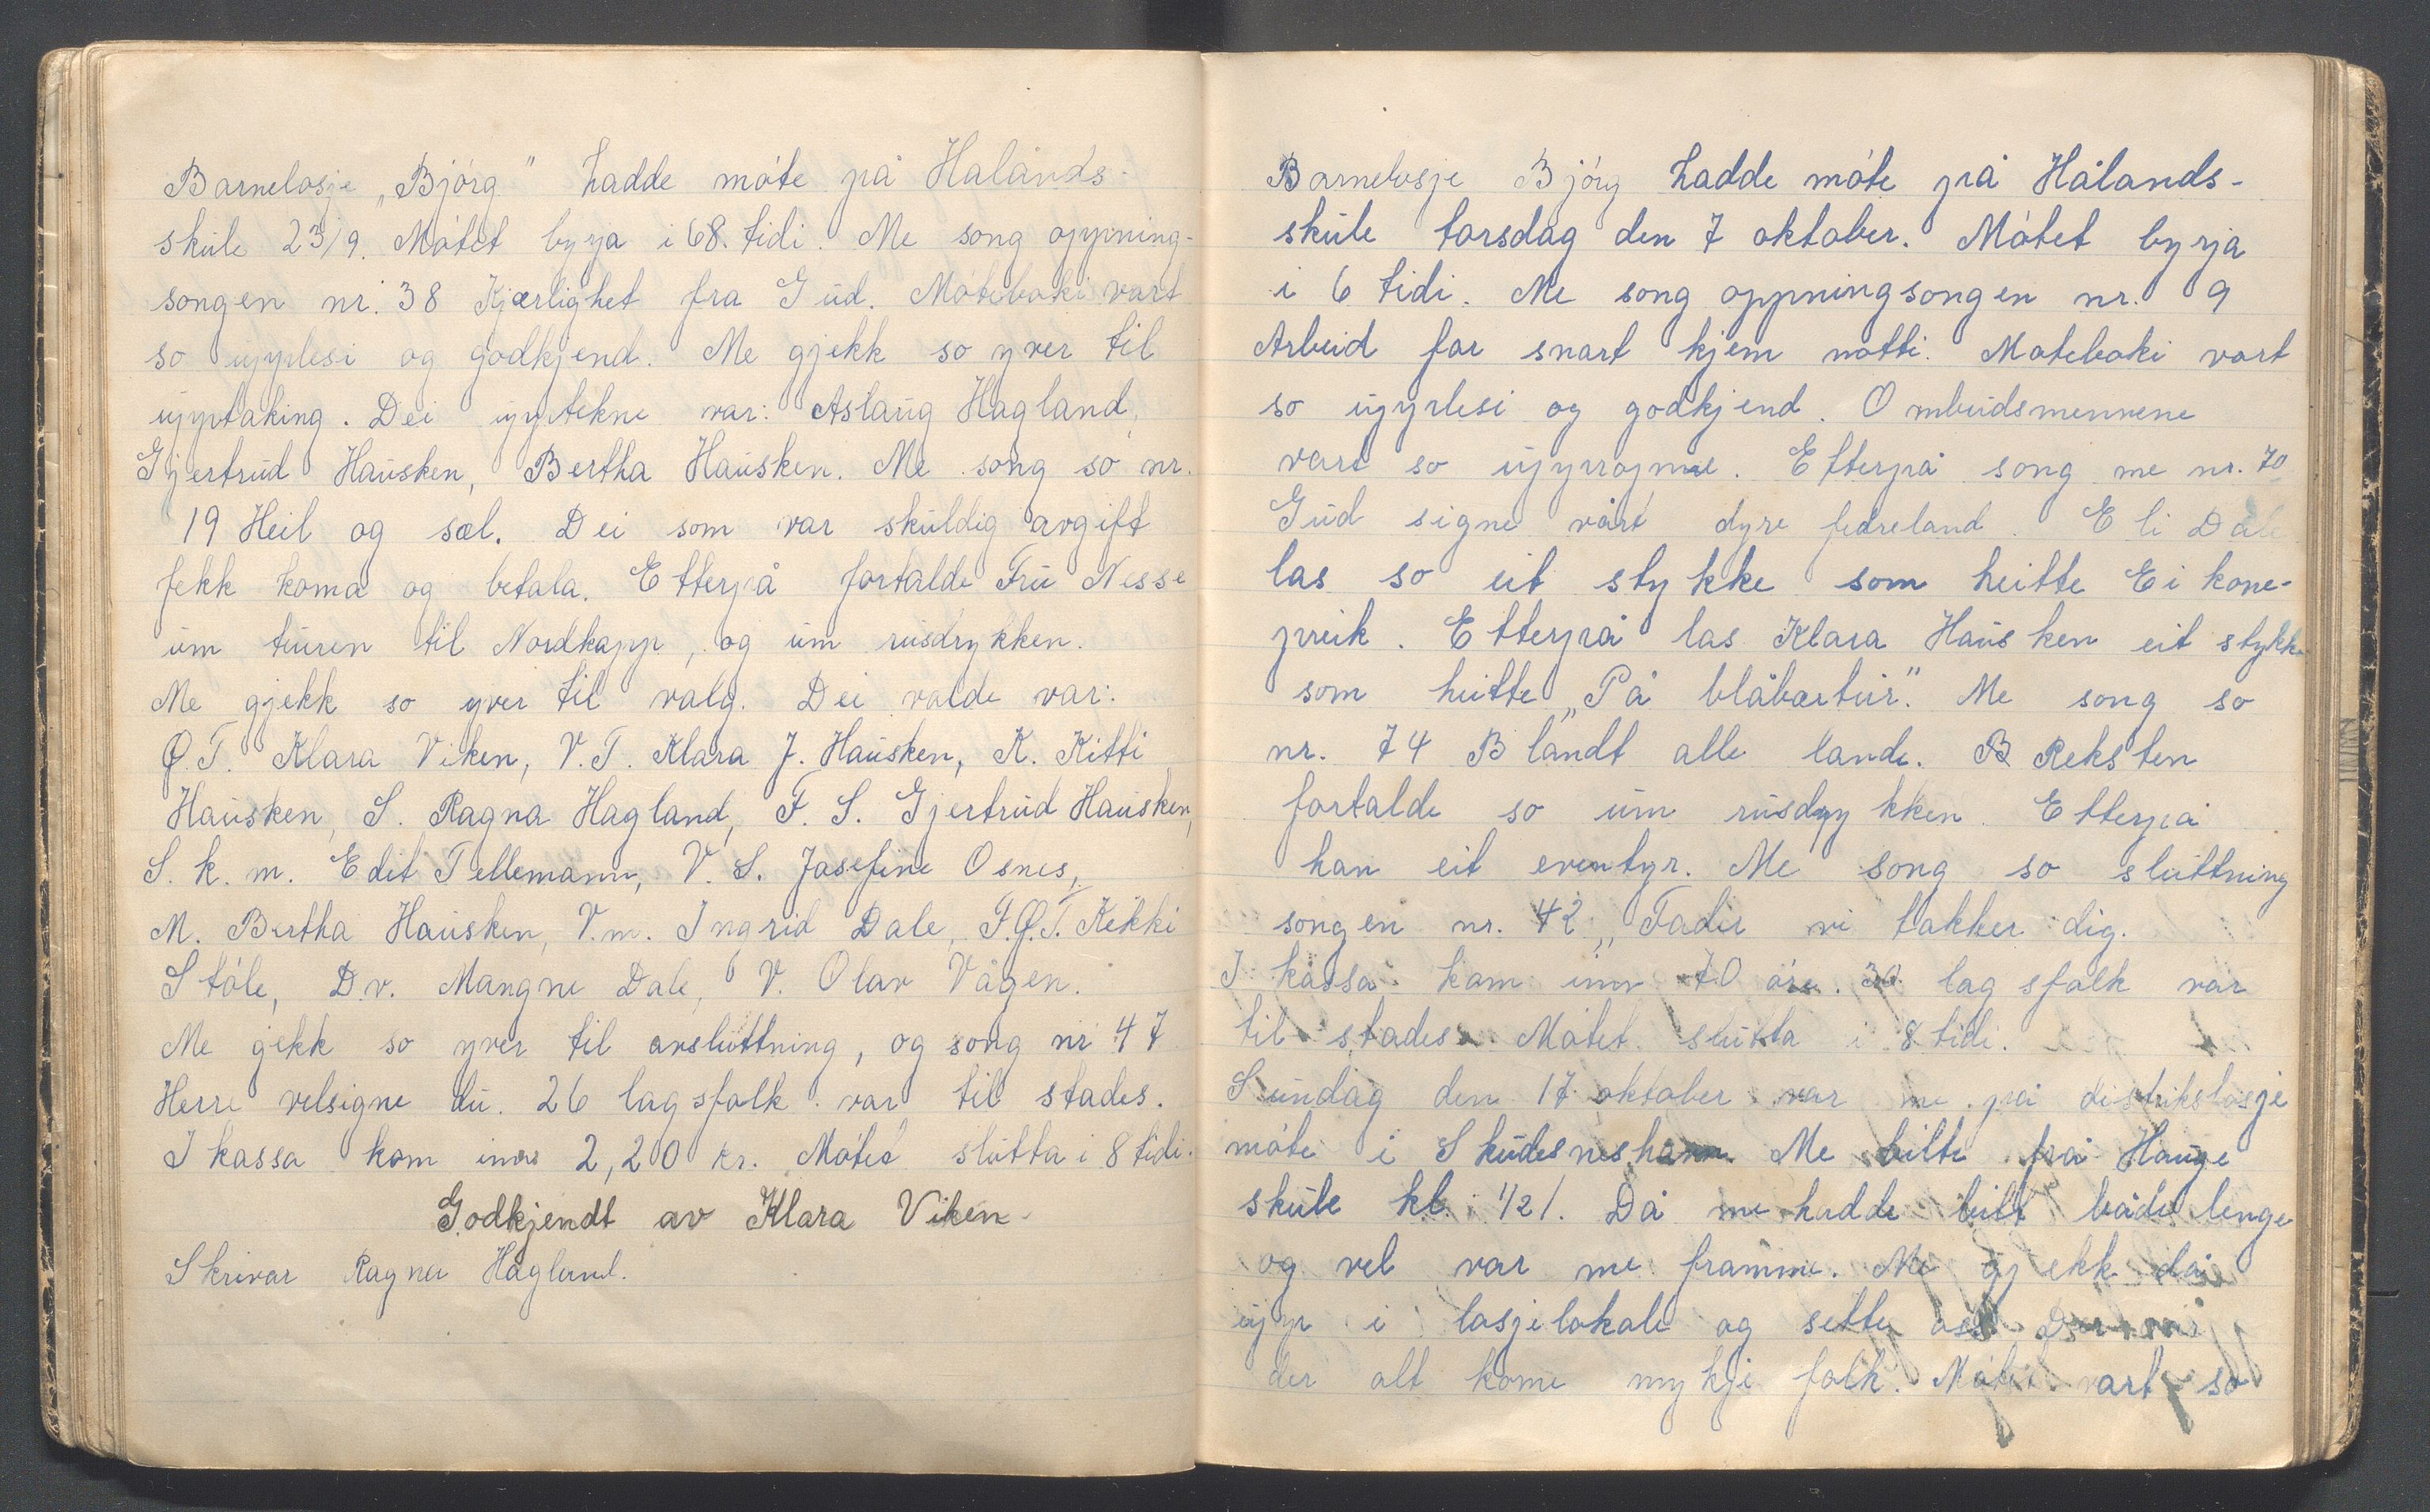 Barnelosje „Bjórg" hadde móte på Hålands-
skule 23/9. Mótet byrja i 68. tidi. Me song oppning-
songen nr. 38 Kjærlighet fra Gud. Móteboki vart
so upplesi og godkjend. Me gjekk so yver til
upptaking. Dei upptekne var: Aslaug Hagland,
Gjertrud Hausken, Bertha Hausken. Me song so nr.
19 Heil og sæl. Dei som var skuldig avgift
fekk koma og betala. Etterpå fortalde Fru Nesse
um turen til Nordkapp, og um rusdrykken.
Me gjekk so yver til valg. Dei valde var:
Ø.T. Klara Viken, V.T. Klara J. Hausken, K. Kitti
Hausken, S. Ragna Hagland, F. S. Gjertrud Hausken,
S. k. m. Edit Tellemann, V. S. Josefine Osnes,
M. Bertha Hausken, V.m. Ingrid Dale, F.Ø.T. Kikki
Stóle, D.v. Mangne Dale, V. Olav Vågen.
Me gekk so yver til avsluttning, og song nr 47
Herre velsigne du. 26 lagsfolk var til stades.
I kassa kom inn 2,20 kr. Mótet slutta i 8 tidi.
Godkjendt av Klara Viken
Skrivar Ragna Hagland.
Barnelosje Bjórg hadde móte på Hålands-
skule torsdag den 7 oktober. Mótet byrja
i 6 tidi. Me song oppningsongen nr. 9
Arbeid for snart kjem notti. Moteboki vart
so upplesi og godkjend. Ombudsmennene
vart so uppropne. Etterpå song me nr. 70
Gud signe vårt dyre fedreland. Eli Dale
las so eit stykke som heitte Ei kone-
preik. Etterpå las Klara Hausken eit stykke
som heitte „På blåbærtur." Me song so
nr. 74 Blandt alle lande. B Reksten
fortalde so um rusdrykken. Etterpå
han eit eventyr. Me song so sluttning
songen nr. 42 „Fader vi takker dig.
I kassa kom inn 70 óre. 30 lagsfolk var
til stades. Mótet slutta i 8 tidi.
Sundag den 17 oktober var me på distrikslosje
móte i Skudesneshavn. Me bilte frå Hauge
skule kl. 1/21. Då me hadde bilt både lenge
og vel var me framme. Me gjekk då
upp i losjelokale og sette oss.
der alt kome mykje folk. Mótet vart so